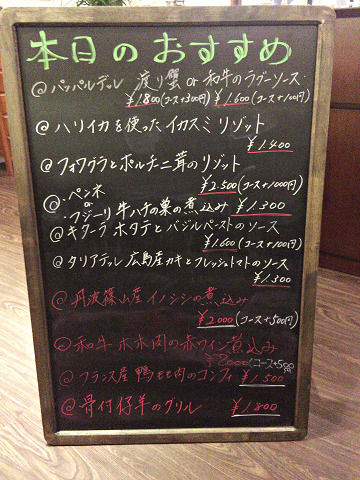 本日のおすすめ
@パッパルデッレ 渡り蟹 or 和牛のラグーソース
¥1800(コース+300円) ¥1600(コース+100円)
@ハリイカを使ったイカスミリゾット
¥1.400
@フォワグラとポルチーニ茸のリゾット
¥2.500(コース+1000円)
@・ペンネ
or
・フジーリ 牛ハチの巣の煮込み ¥1.300
@キターラ ホタテとバジルペーストのソース
¥1.600(コース+100円)
@タリアテッレ 広島産カキとフレッシュトマトのソース
¥1.300
@丹波篠山産イノシシの煮込み
¥2000(コース+500円)
@和牛ホホ肉の赤ワイン煮込み
¥2000(コース+500円)
@フランス産 鴨もも肉のコンフィ ¥1.500
@骨付仔羊のグリル ¥1.800